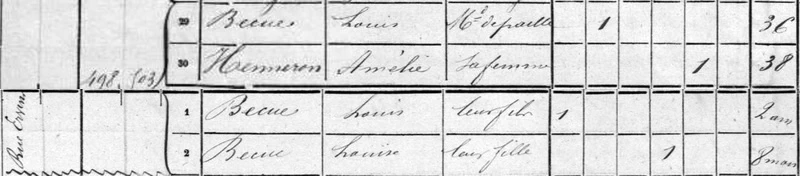 29 Becue Louis Md de paille 1 36
30 Henneron Amélie sa femme 1 38
498 503
1 Becue Louis leur fils 1 2 ans
2 Becue Louise leur fille 1 8 mois
Rue